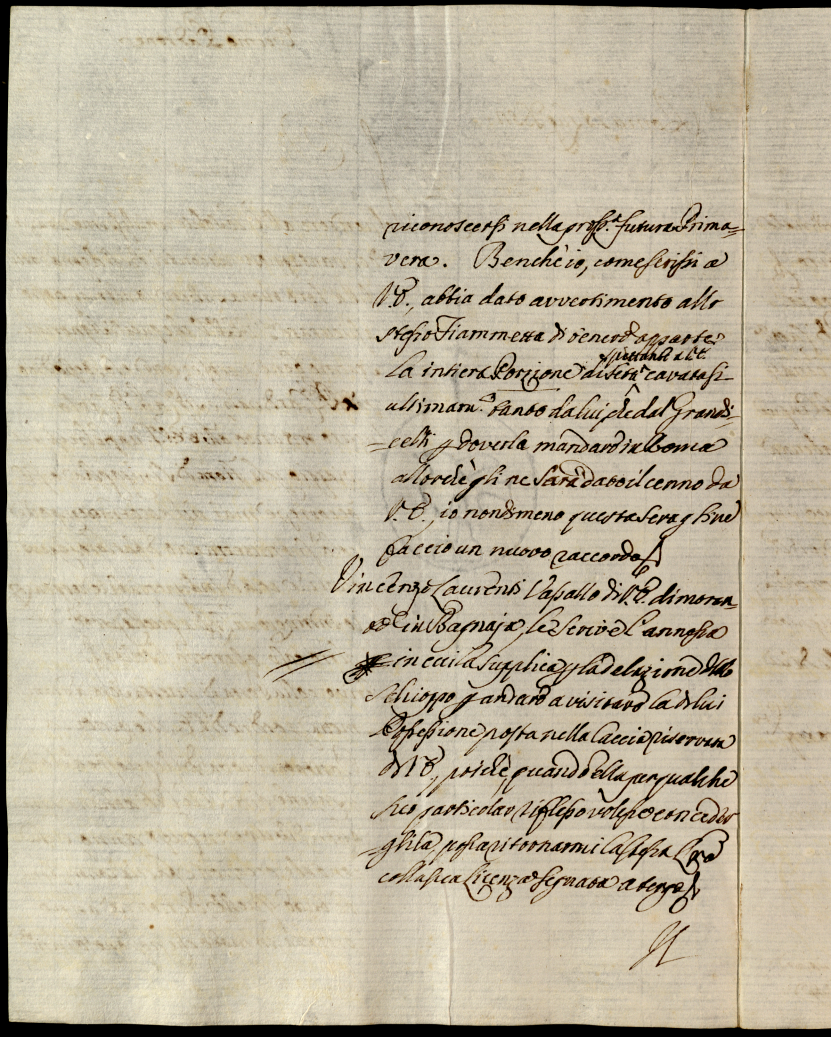 riconoscersi nella pross.ª futura Prima=
vera. Benche io, come scrissi a
V.E., abbia dato avvertimento allo
stesso Fiammetta di tener d'apparte
spettante a V.E.
la intiera Porzione di Seta cavatasi
ultimam.e tanto da lui, che dal Grandi=
=celli p doverla mandare in Roma
allorche gli ne sarà dato il cenno da
V.E., io nondimeno questa sera gli ne
faccio un nuovo raccordo
Vincenzo Laurenti Vassallo di V.E. dimoran=
te in Bagnaja, le scrive l'annessa
in cui la supplica p la delazione dello
Schioppo p andare a visitare la di lui
Possessione posta nella Caccia riservata
di V.E., poiche, quando ella per qualche
suo particolar riflesso volesse conceder=
=glila, possa ritornarmi la stessa Lra
colla sua Licenza segnata a tergo
Il